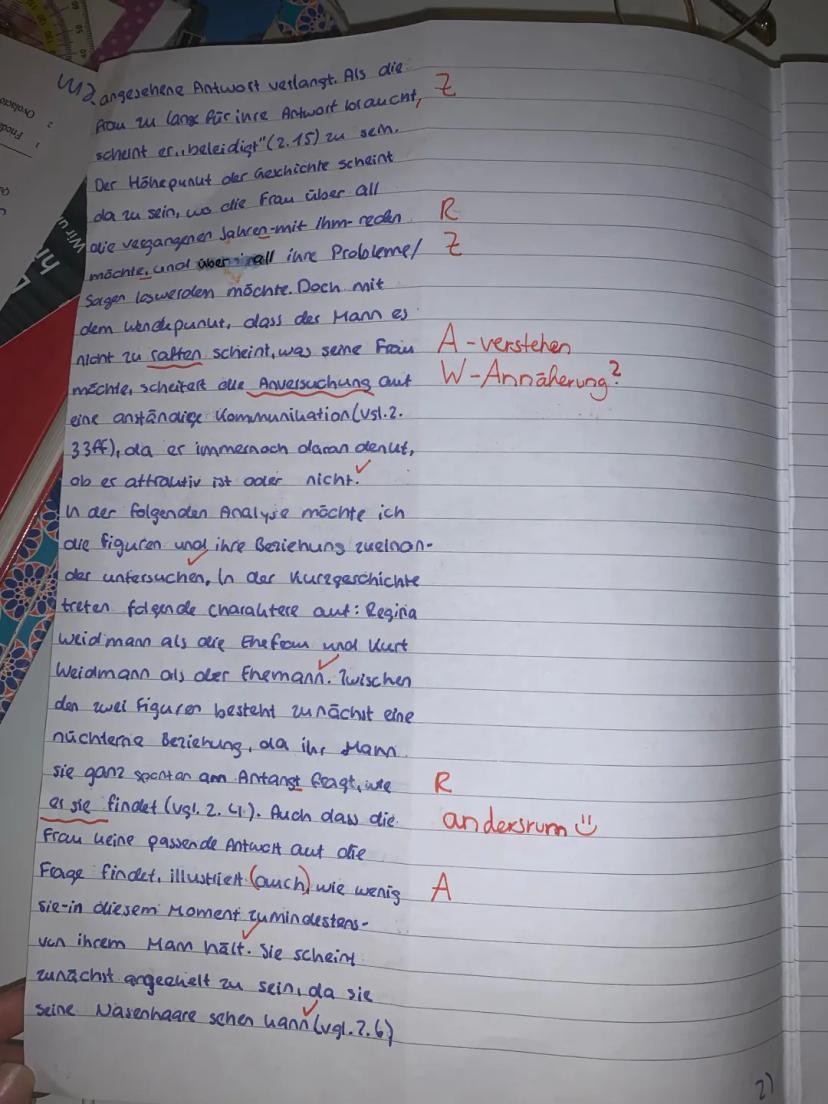 angesehene Antwort verlangt. Als die
Frau zu lang für ihre Antwort braucht, Z
scheint er „beleidigt" (Z.15) zu sein.
Der Höhepunkt der Geschichte scheint
da zu sein, wo die Frau über all
die vergangenen Jahren mit ihm reden R
möchte, und über all ihre Probleme/ Z
Sorgen loswerden möchte. Doch mit
dem Wendepunkt, dass der Mann es
nicht zu raffen scheint, was seine Frau A - verstehen
möchte, scheitert die Anversuchung auf W - Annäherung?
eine anständige Kommunikation (vgl. Z.
33ff), da er immernoch daran denkt,
ob er attraktiv ist oder nicht.
In der folgenden Analyse möchte ich
die Figuren und ihre Beziehung zueinan-
der untersuchen. In der Kurzgeschichte
treten folgende Charaktere auf: Regina
Weidmann als die Ehefrau und Kurt
Weidmann als der Ehemann. Zwischen
den zwei Figuren besteht zunächst eine
nüchterne Beziehung, da ihr Mann
sie ganz spontan am Anfangt fragt, wie R
er sie findet (vgl. Z. 4). Auch dass die andersrum
Frau keine passende Antwort auf die
Frage findet, illustriert (auch) wie wenig A
sie-in diesem Moment zumindestens-
von ihrem Mann hält. Sie scheint
zunächst angeekelt zu sein, da sie
seine Nasenhaare sehen kann (vgl. Z.6)
2)